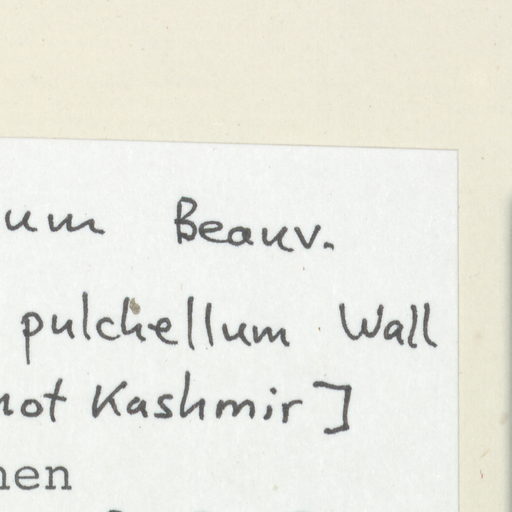 um Beauv.
pulchellum Wall
not Kashmir]
nen